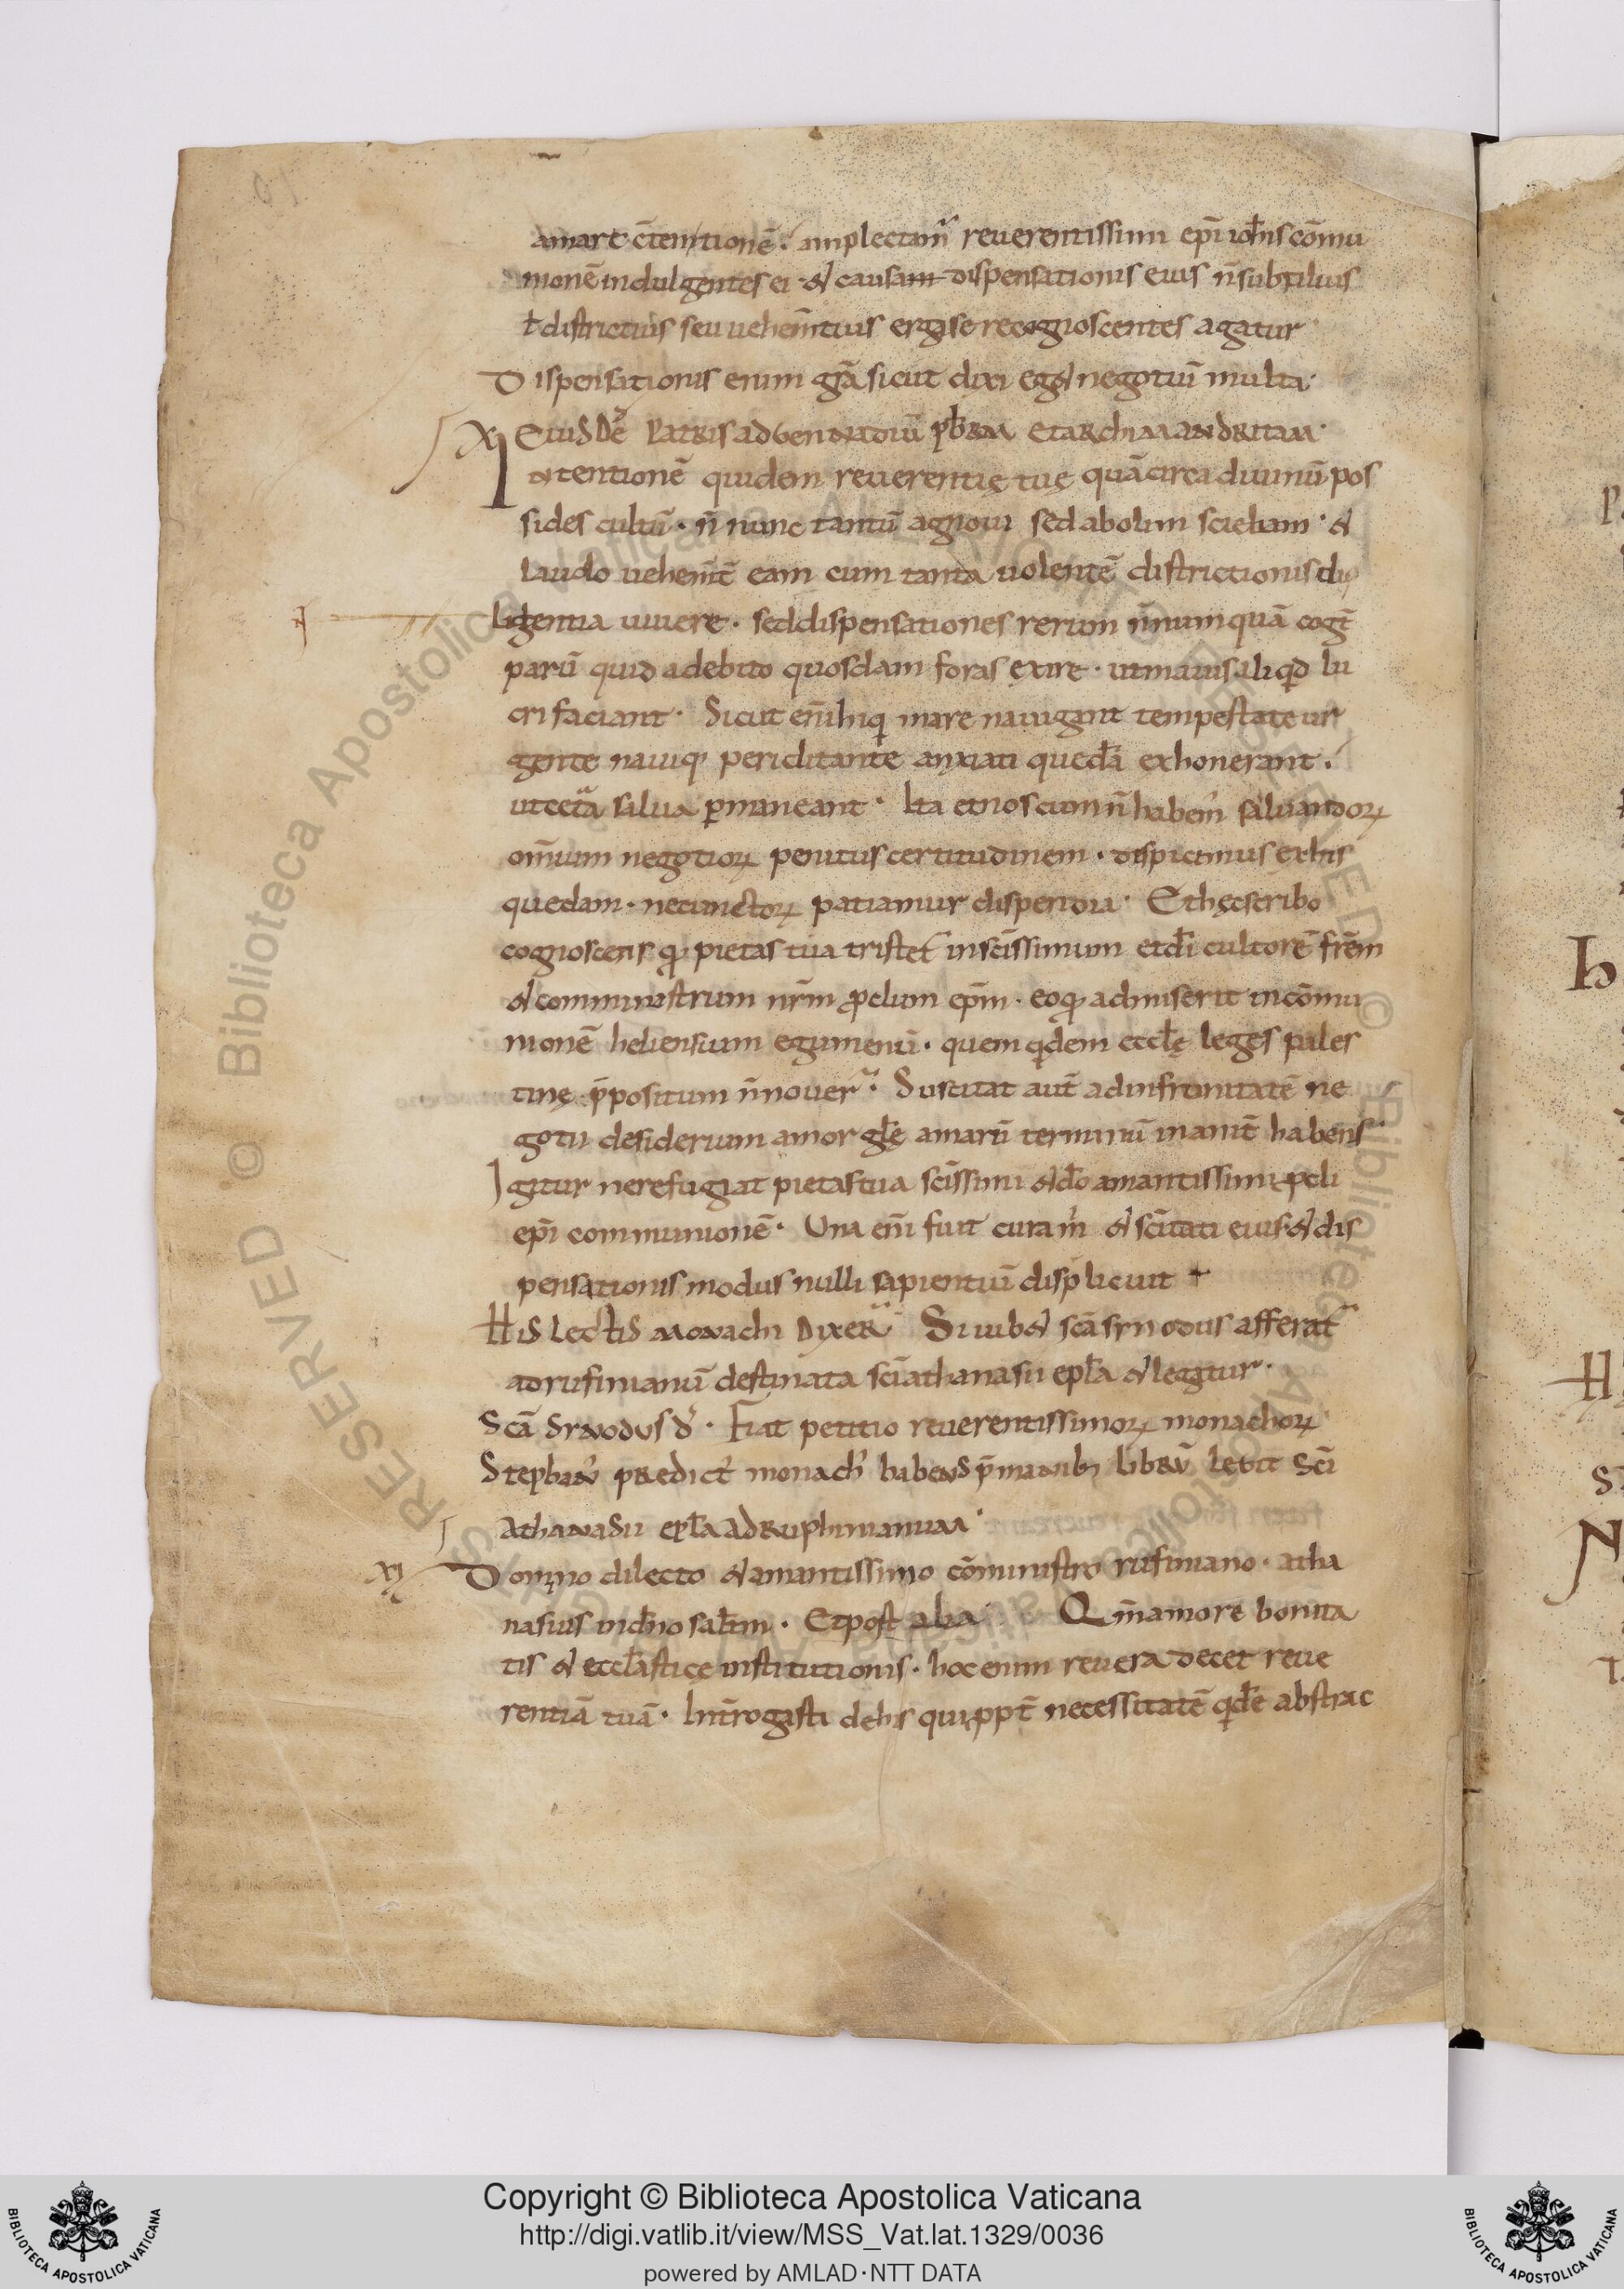 amare c̄tentionē. amplectam̄ reuerentissimi ep̄i ioh̄is cōmu
nionē indulgentes ei · & causam dispensationis eius n̄ subtilius
ł districtius seu uehem̄tius erga se recognoscentes agatur
Dispensationis enim gr̄a sicut dixi eg& negotiū multa·
X EIUSDĒ PATRIS AD GENNADIŪ PB̄RM ET ARCHIMANDRITAM·
Intentionē quidem reuerentię tuę quā circa diuinū pos
sides cultū · n̄ nunc tantū agnoui sed ab olim sciebam · &
laudo uehem̄t̄ eam cum tanta uolentē districtionis di
ligentia uiuere · sed dispensationes rerum n̄numquā coḡt
parū quid a debito quosdam foras exire · ut maius aliqd lu
cri faciant · Sicut eni hi qi mare nauigant tempestate ur
gente nauiq; periclitante anxiati quedā exhonerant ·
ut cet̄a salua ꝑmaneant · Ita et nos cum n̄ habem' saluandoꝝ
om̄ium negotioꝝ penitus certitudinem · dispicimus ex his
quedam · ne cunctoꝝ patiamur dispendia · Et hęc scribo
cognoscens qd pietas tua tristet̄ in sc̄issimum et dī cultorē fr̄em
& comministrum nr̄m ꝓclum ep̄m · eo qd admiserit in cōmu
nionē heliensium egumenū · quem qdem eccl̄ę leges pales
tinę p̄positum n̄ nouer̄ · Suscitat aut̄ ad infrunitatē ne
gotii desiderium amor gl̄ę amarū terminū inanit̄ habens·
Igitur ne refugiat pietas tua sc̄issimi & dō amantissimi ꝓcli
ep̄i communionē · Una eni fuit cura m̄ & sc̄itati eius · & dis
pensationis modus nulli sapientiū displicuit
HIS LECTIS MONACHI DIXER̄ Si iub& sc̄a synodus afferat̄
ad rufinianū destinata sc̄i athanasii epl̄a & legitur·
SCĀ SYNODUS D̄ · Fiat petitio reuerentissimoꝝ monachoꝝ
STEPHAN' PREDICT' monach' habens p̄ manib; librū legit Sc̄i
ATHANASII EPL̄A AD RUPHINIANUM·
XI Domno dilecto & amantissimo cōministro rufiniano · atha
nasius in dn̄o sal̄tm · Et post alia · Qm̄ amore bonita
tis & eccl̄asticę institutionis · hoc enim reuera decet reue
rentiā tuā · Int̄rogasti de his qui ꝓpt̄ necessitatē qdē abstrac
Copyright © Biblioteca Apostolica Vaticana
http://digi.vatlib.it/view/MSS_Vat.lat.1329/0036
powered by AMLAD·NTT DATA
BIBLIOTECA APOSTOLICA VATICANA
BIBLIOTECA APOSTOLICA VATICANA